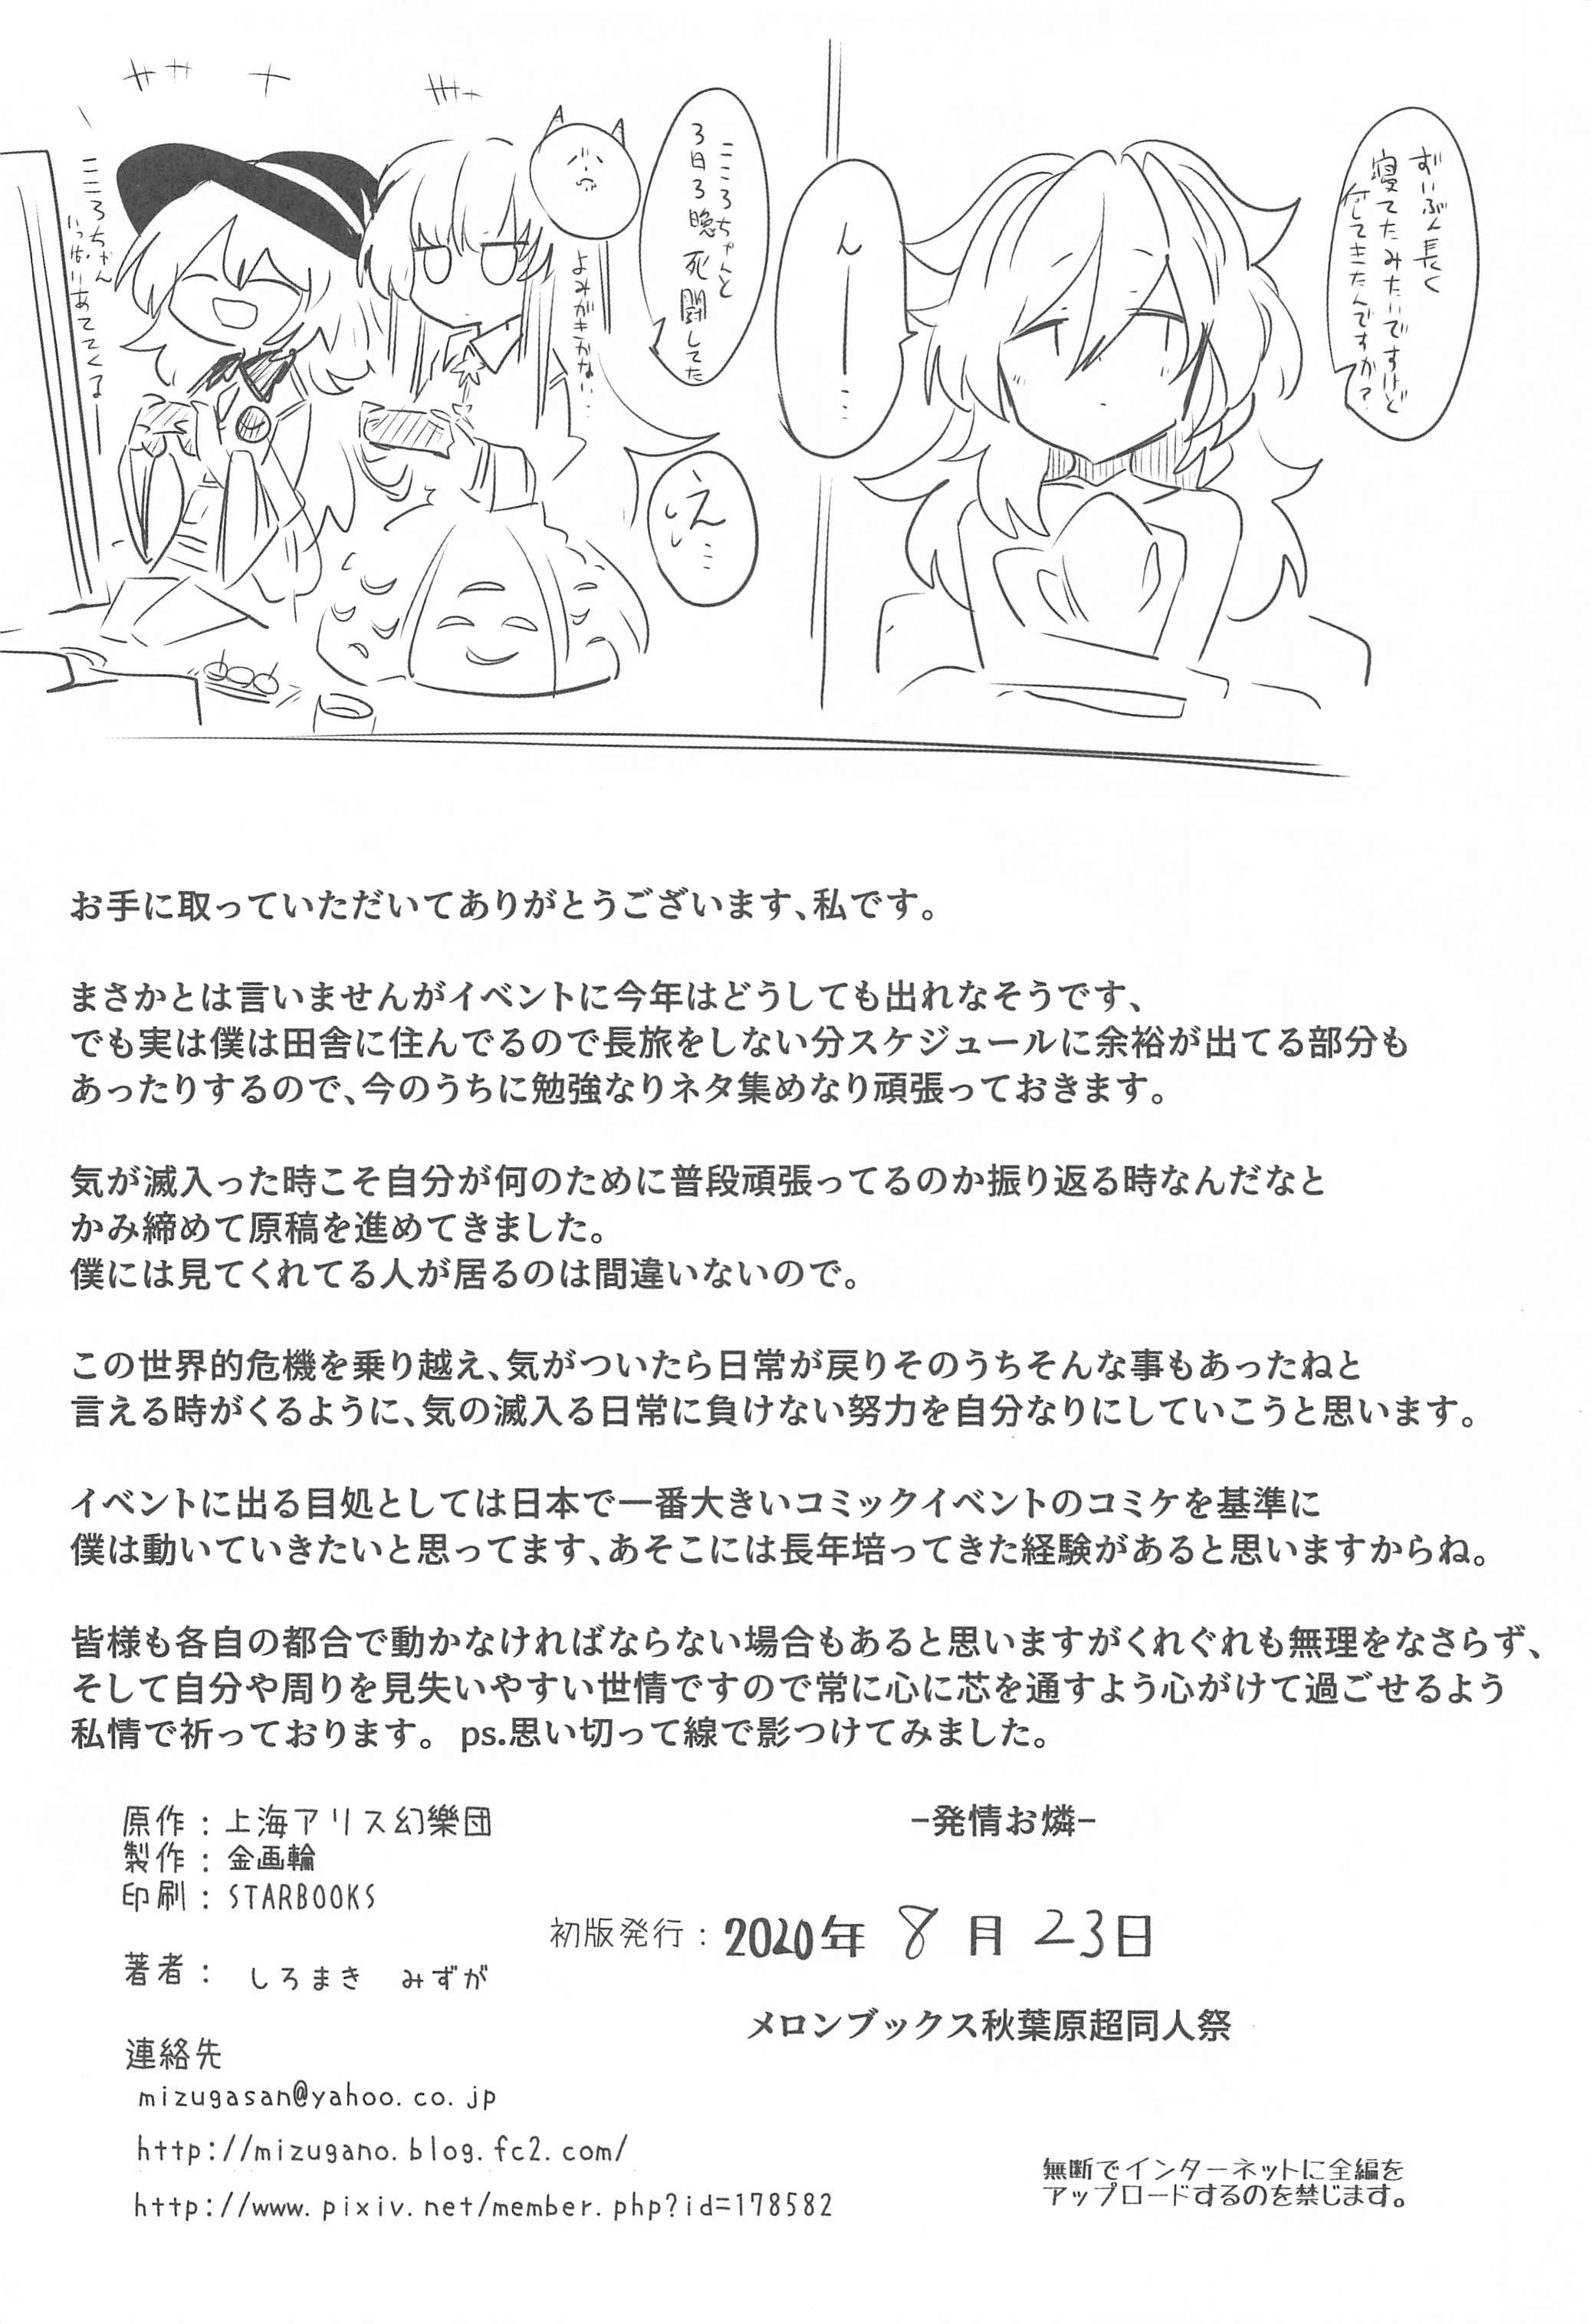 ずいぶん長く
寝てたみたいですけど
何してきたんですか?
ん――…
こころちゃんと
3日3晩死闘してた
え…
よみがきかない…
こころちゃん
いっぱいあててくるー
お手に取っていただいてありがとうございます、私です。
まさかとは言いませんがイベントに今年はどうしても出れなそうです、
でも実は僕は田舎に住んでるので長旅をしない分スケジュールに余裕が出てる部分も
あったりするので、今のうちに勉強なりネタ集めなり頑張っておきます。
気が滅入った時こそ自分が何のために普段頑張ってるのか振り返る時なんだなと
かみ締めて原稿を進めてきました。
僕には見てくれてる人が居るのは間違いないので。
この世界的危機を乗り越え、気がついたら日常が戻りそのうちそんな事もあったねと
言える時がくるように、気の滅入る日常に負けない努力を自分なりにしていこうと思います。
イベントに出る目処としては日本で一番大きいコミックイベントのコミケを基準に
僕は動いていきたいと思ってます、あそこには長年培ってきた経験があると思いますからね。
皆様も各自の都合で動かなければならない場合もあると思いますがくれぐれも無理をなさらず、
そして自分や周りを見失いやすい世情ですので常に心に芯を通すよう心がけて過ごせるよう
私情で祈っております。 ps.思い切って線で影つけてみました。
原作:上海アリス幻樂団
製作:金画輪
印刷:STARBOOKS
著者: しろまき みずが
連絡先
mizugasan@yahoo.co.jp
http://mizugano.blog.fc2.com/
http://www.pixiv.net/member.php?id=178582
−発情お燐−
初版発行:2020年 8月 23日
メロンブックス秋葉原超同人祭
無断でインターネットに全編を
アップロードするのを禁じます。